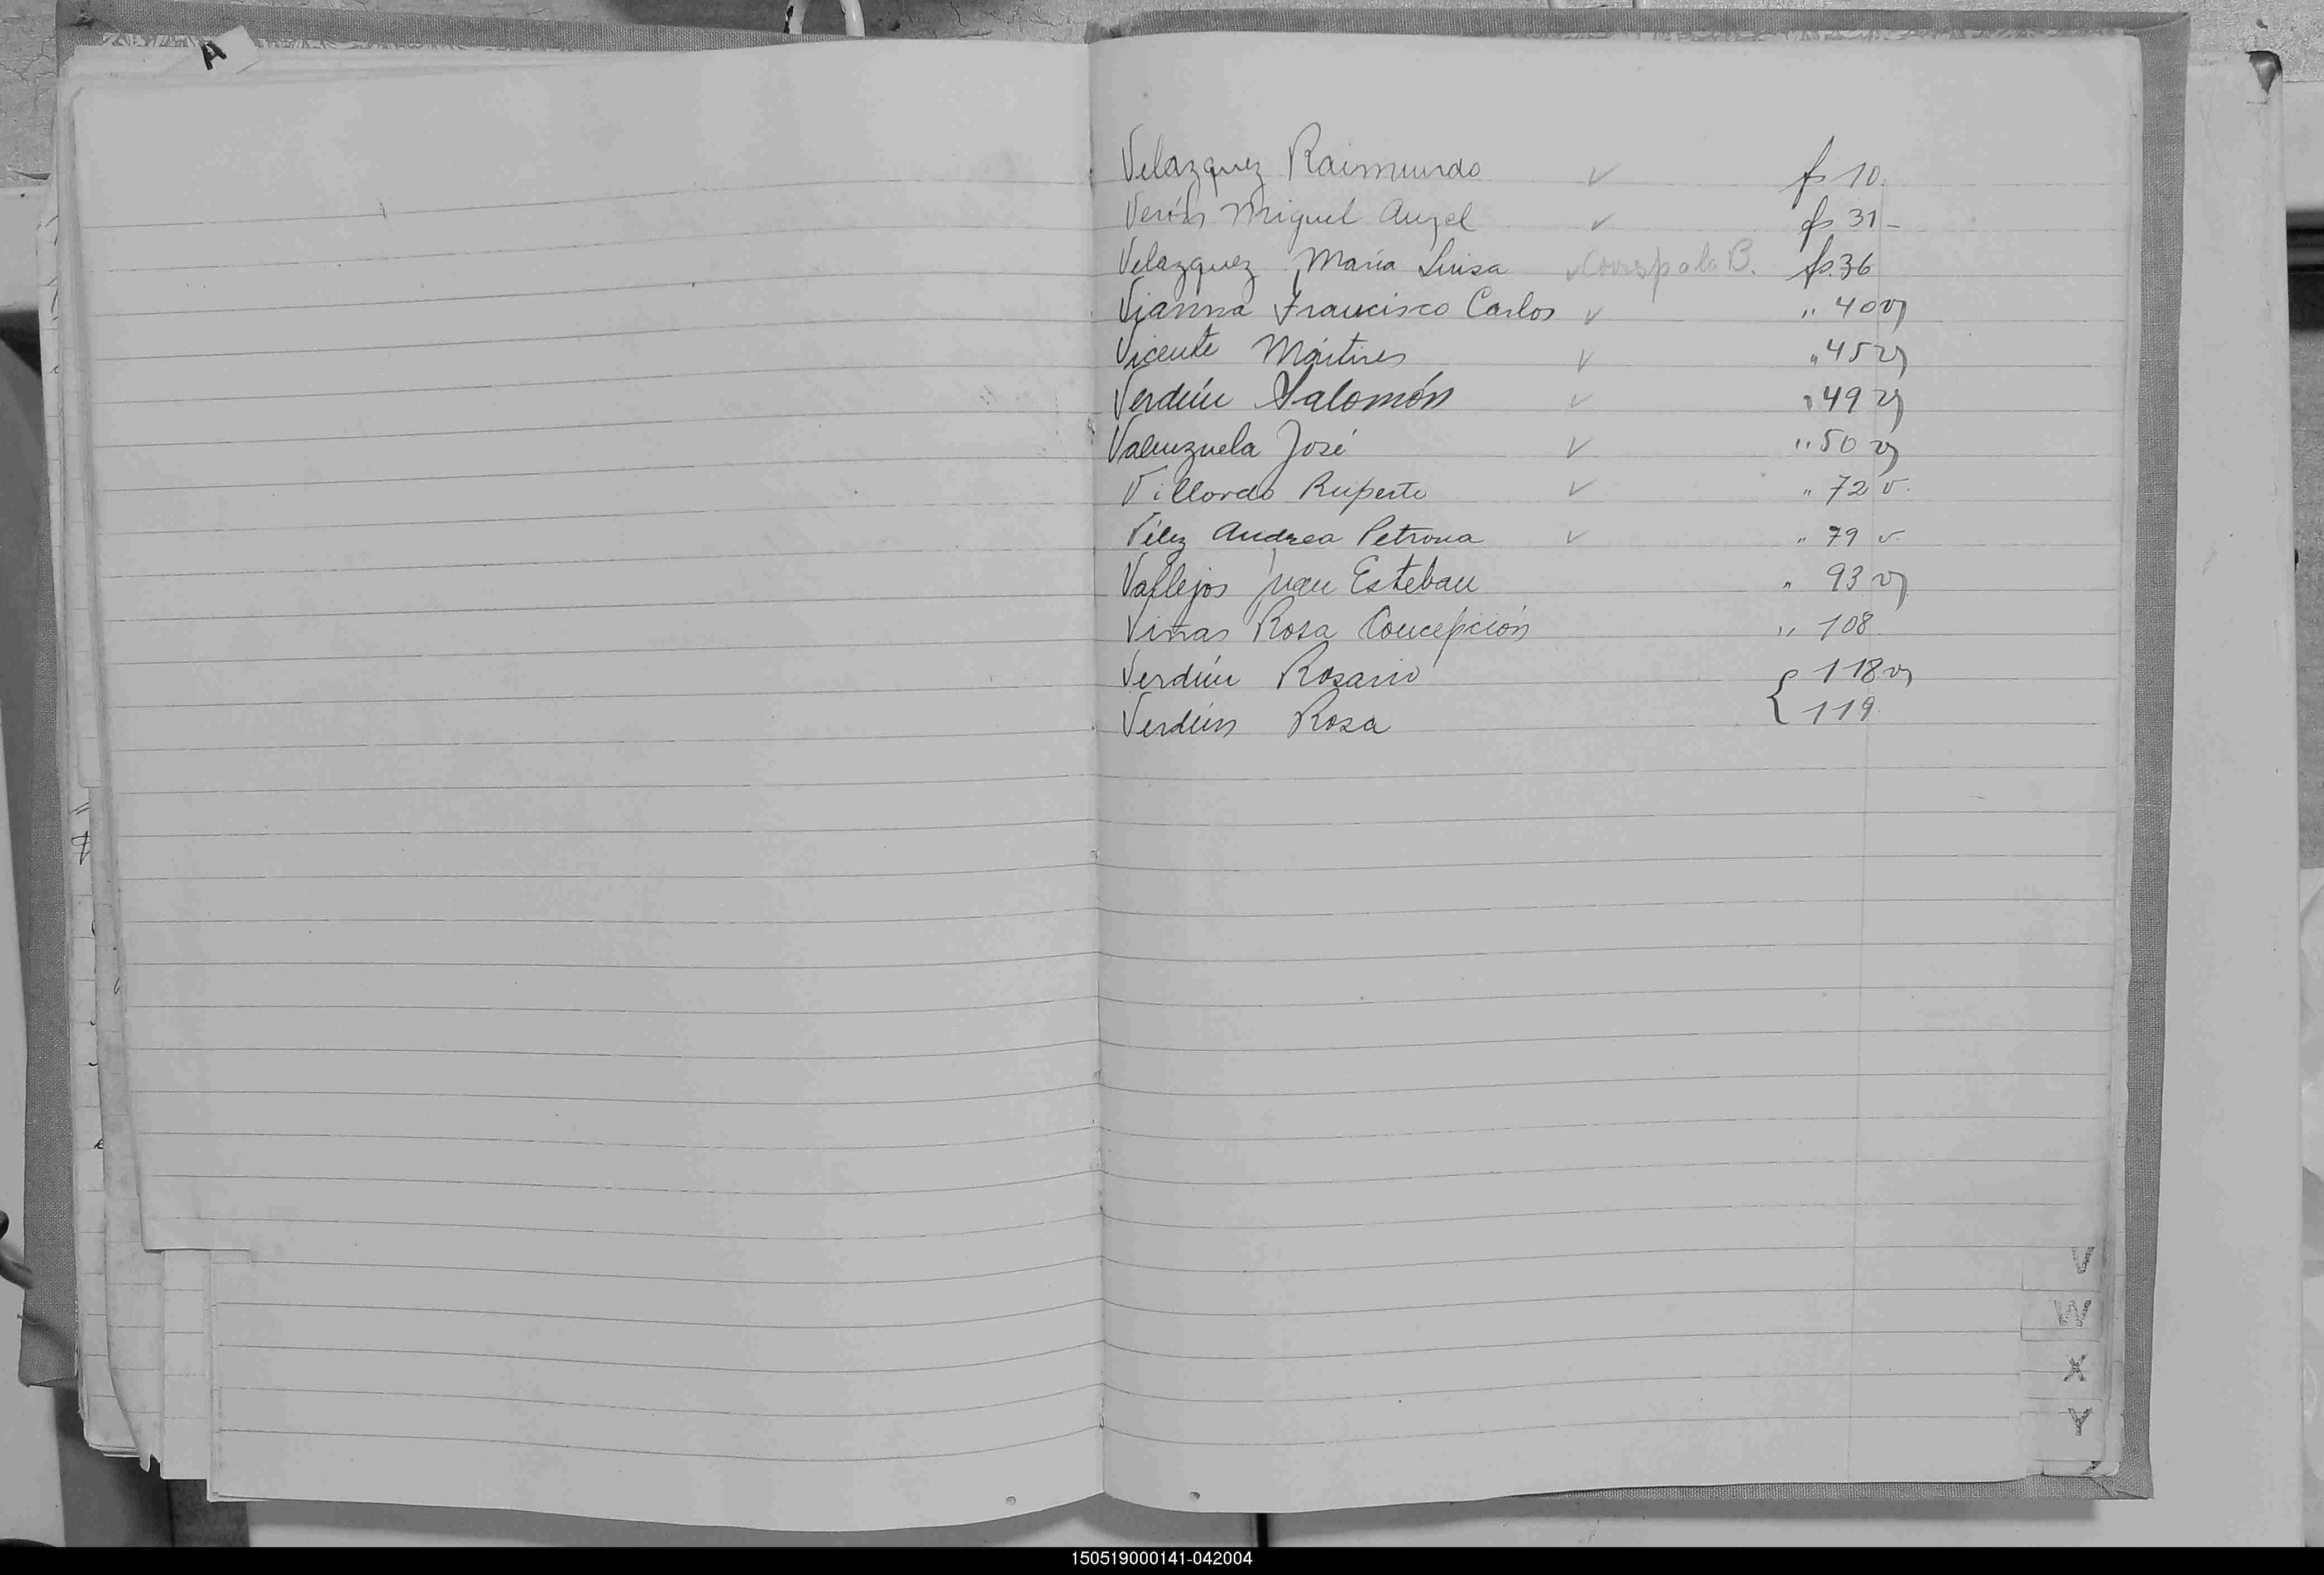 A
Velazquez Raimundo ✓ fs 10.
Verón Miguel Angel ✓ fs 31-
Velazquez María Luisa ✓ Corresp a la B. fs. 36
Vianna Francisco Carlos ✓ " 40 v
Vicente Mártires ✓ " 45 v
Verdún Salomón ✓ " 49 v
Valenzuela José ✓ " 50 v
Villordo Ruperto ✓ " 72 v.
Vélez Andrea Petrona ✓ " 79 v.
Vallejos Juan Esteban " 93 v
Viñas Rosa Concepción " 108
Verdún Rosario { 118 v
Verdún Rosa 119.
V
W
X
Y
150519000141-042004